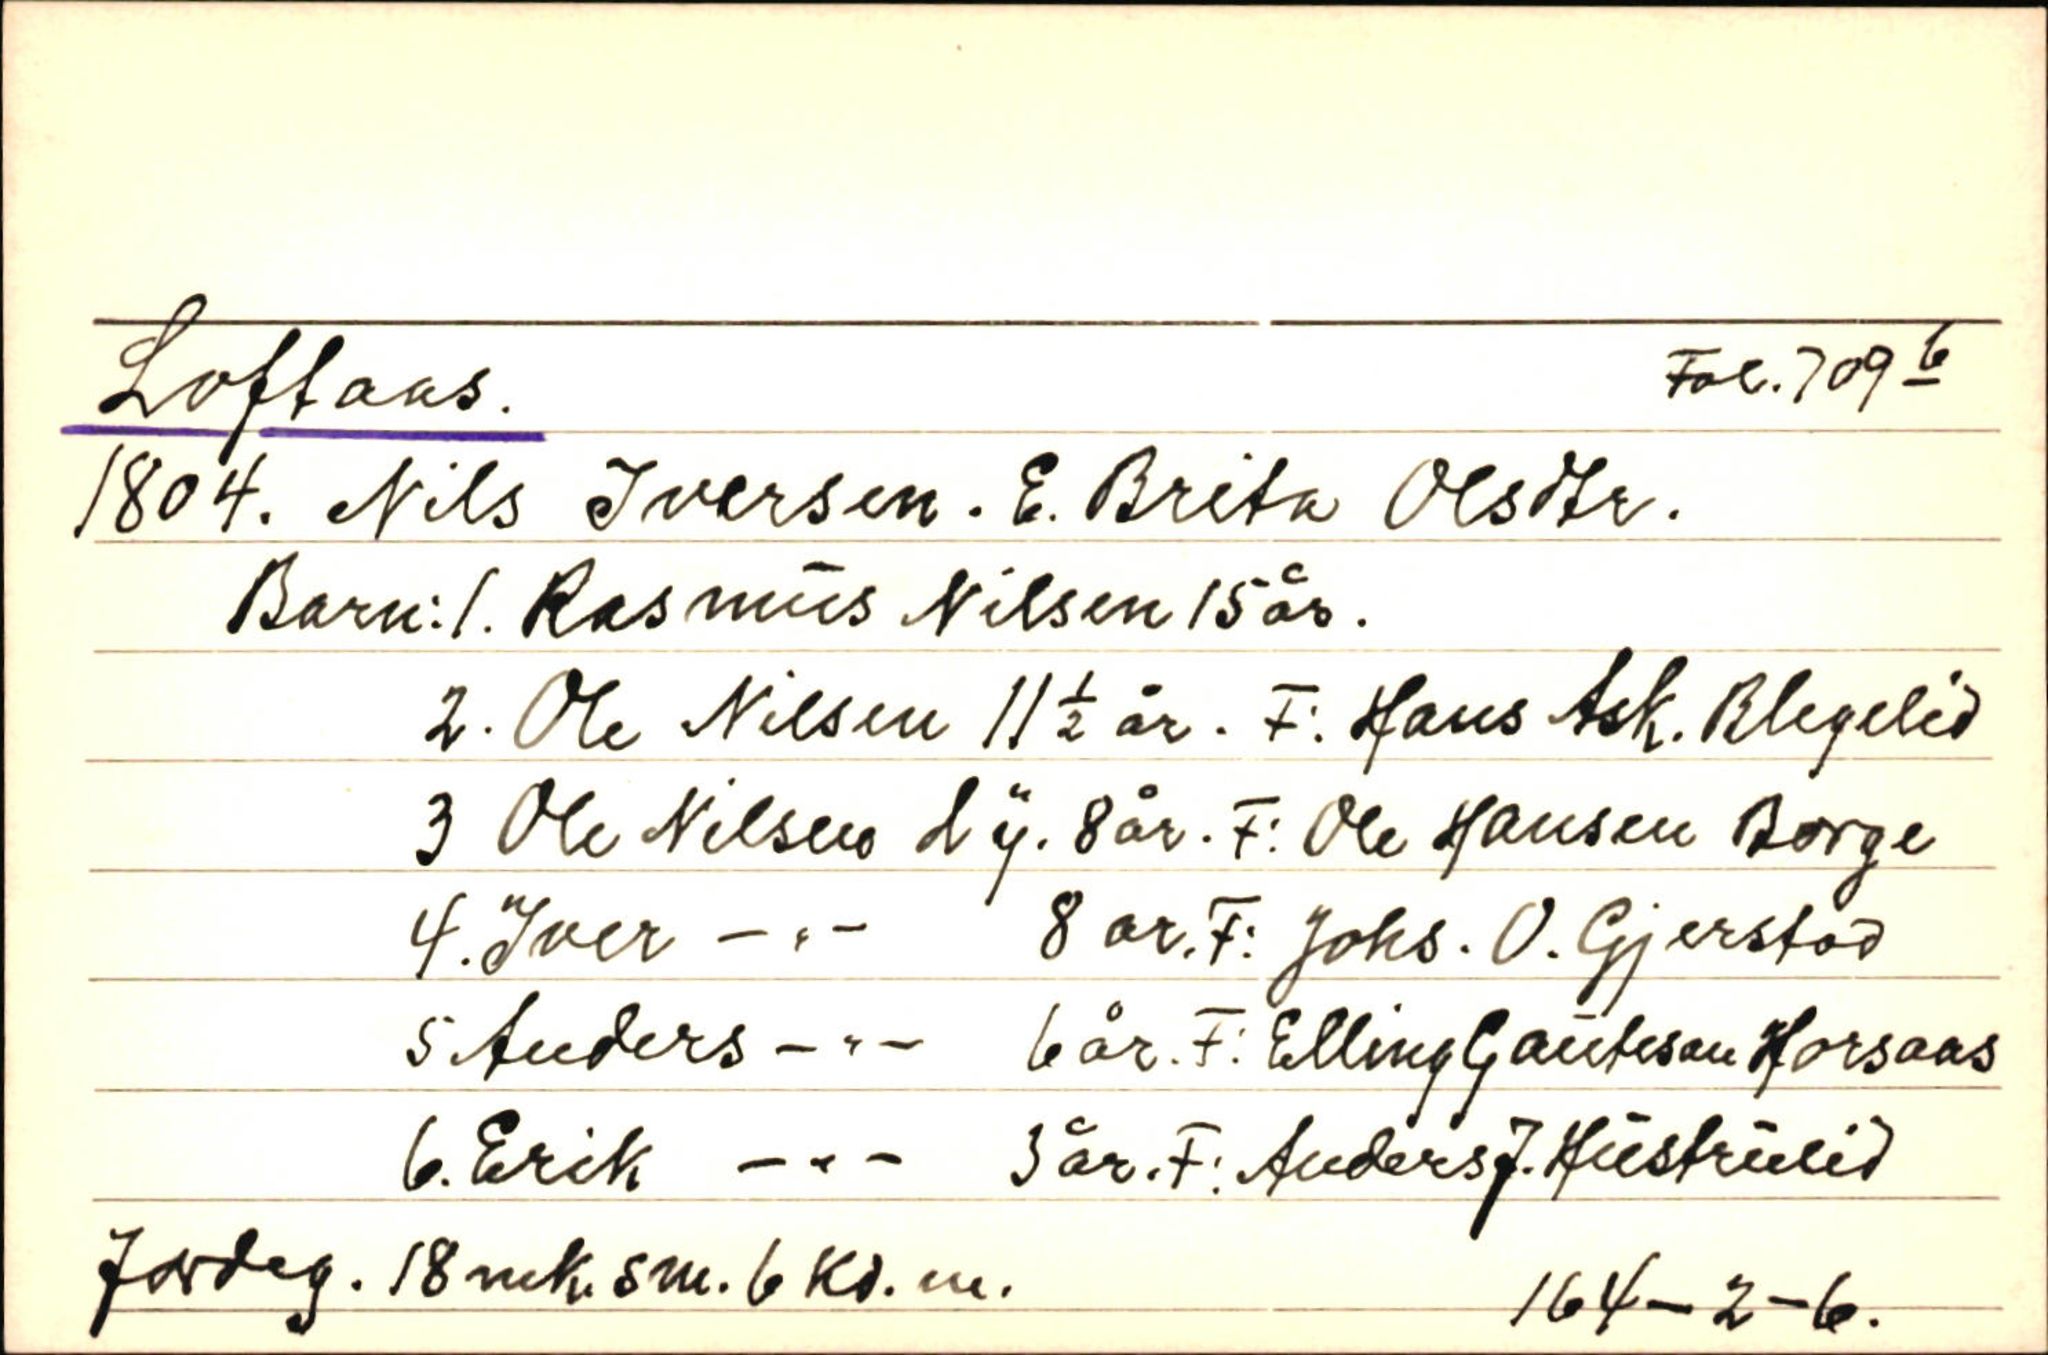 Loftaas. Fol. 709 b
1804. Nils Iversen. E. Brita Olsdtr.
Barn: 1. Rasmus Nilsen 15 år.
2. Ole Nilsen 11 1/2 år. F: Hans Ask. Blegelid
3 Ole Nilsen d y. 8 år. F: Ole Hansen Borge
4. Iver – " – 8 ar. F: Johs. O. Gjerstad
5 Anders – " – 6 år. F: Elling Gautesen Horsaas
6. Erik – " – 3 år. F: Anders J. Hustrulid
Jordeg. 18 mk. sm. 6 Kd. m. 164 – 2 – 6.